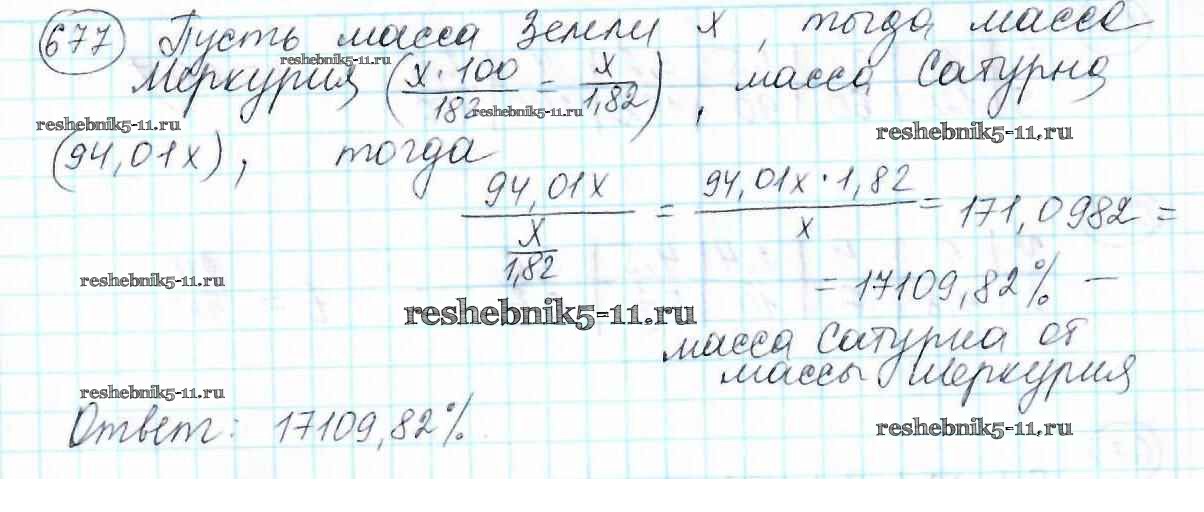 677 Пусть масса Земли x, тогда масса
reshebnik5-11.ru
Меркурия (x·100/182 = x/1,82), масса Сатурна
reshebnik5-11.ru
reshebnik5-11.ru
reshebnik5-11.ru
(94,01x), тогда
94,01x / (x/1,82) = 94,01x·1,82 / x = 171,0982 =
reshebnik5-11.ru
= 17109,82% —
reshebnik5-11.ru
масса Сатурна от
массы Меркурия
reshebnik5-11.ru
Ответ: 17109,82%.
reshebnik5-11.ru